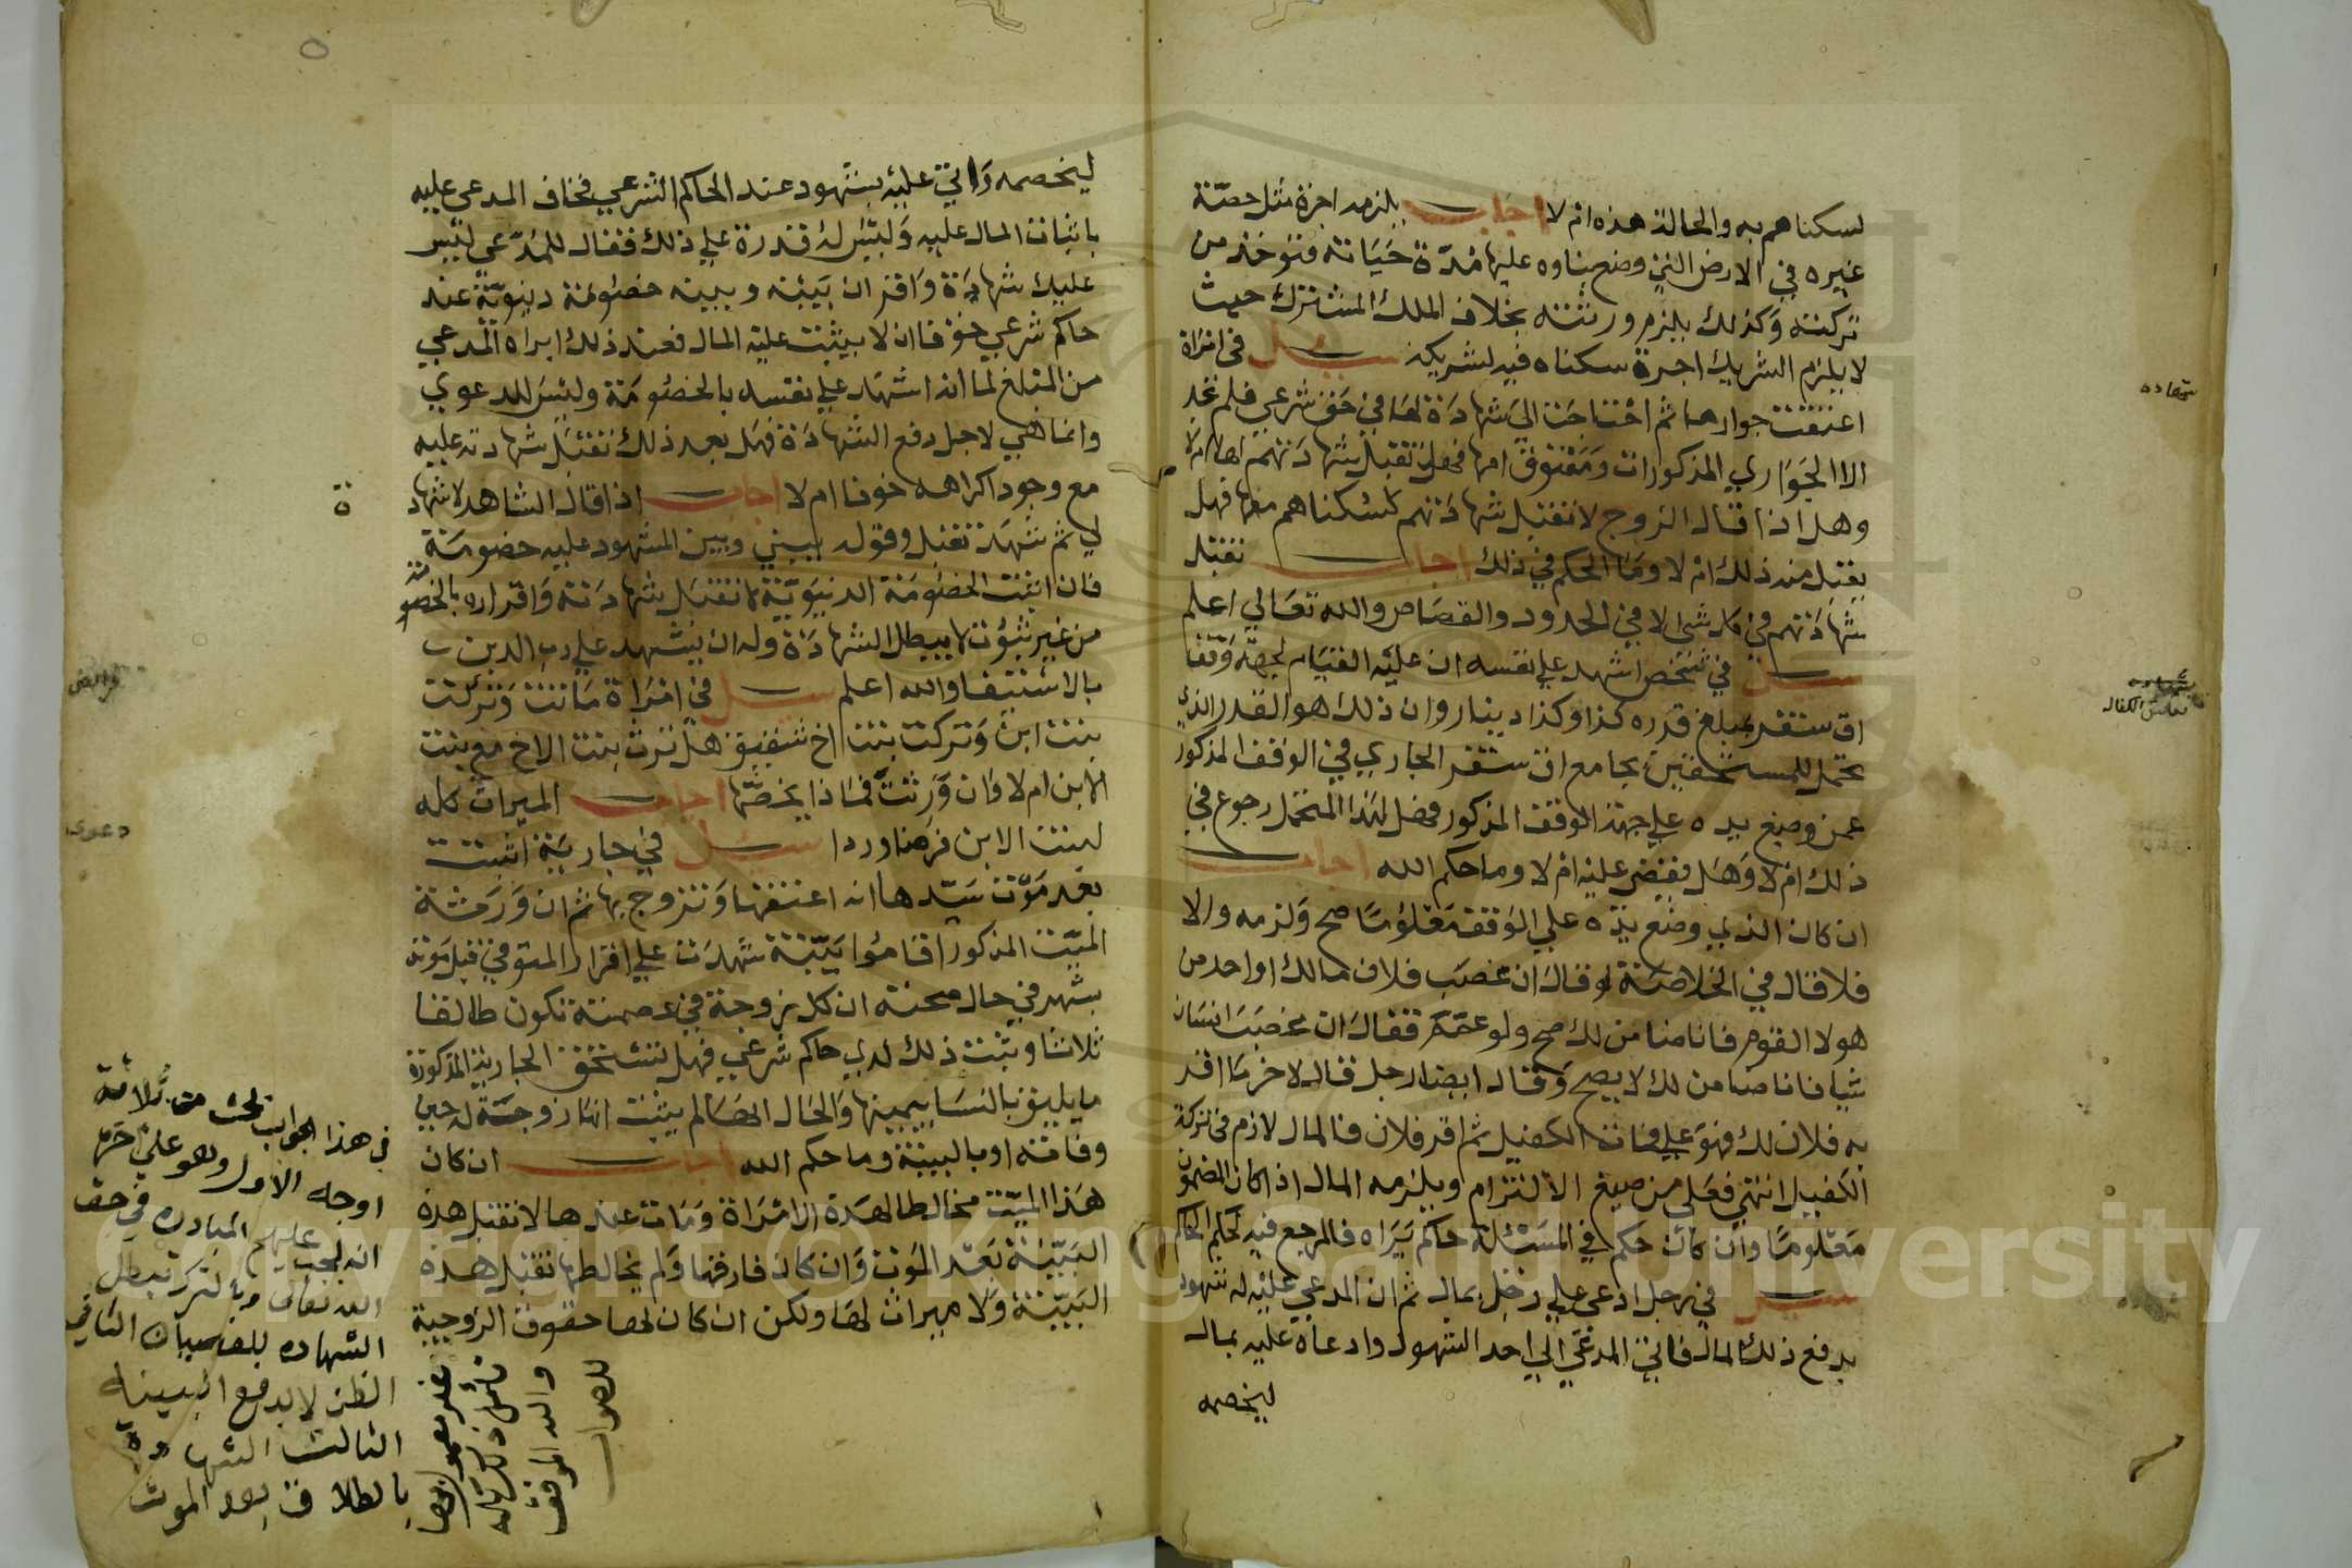 لسكناهم به والحالة هذه ام لا اجاب يلزمه اجرة مثل حصة
غيره في الارض التي وضع بناوه عليها مدة حياته فتوخذ من
تركته وكذلك يلزم ورثته بخلاف الملك المشترك حيث
لا يلزم الشريك اجرة سكناه فيه لشريكه سيل في امراة
اعتقت جوارها ثم احتاجت الي شهادة لها في حق شرعي فلم تجد
الا الجواري المذكورات ومعتوق امها فهل تقبل شهادتهم لها ام لا
وهل اذا قال الزوج لا تقبل شهادتهم لسكناهم معها فهل
يقبل منه ذلك ام لا وما الحكم في ذلك اجاب تقبل
شهادتهم في كل شي الا في الحدود والقصاص والله تعالي اعلم
سيل في شخص اشهد علي نفسه ان عليه القيام لجهة وقف
اق سنقر بمبلغ قدره كذا وكذا دينار وان ذلك هو القدر الذي
تحمل للمستحقين بجامع اق سنقر الجاري في الوقف المذكور
عمن وضع يده علي جهة الوقف المذكور فهل لهذا المتحمل رجوع في
ذلك ام لا وهل يقضي عليه ام لا وما حكم الله اجاب
ان كان الذي وضع يده علي الوقف معلوما صح ولزمه والا
فلا قال في الخلاصة لو قال ان غصب فلان مالك او احد من
هولا القوم فانا ضامن لك صح ولو عمم فقال ان غصبك انسان
شيا فانا ضامن لك لا يصح وقال ايضا رجل قال لاخر ما اقر
به فلان لك فهو علي فمات الكفيل ثم اقر فلان فالمال لازم في تركة
الكفيل انتهي فعلي من صيغ الالتزام ويلزمه المال اذا كان المضمون
معلوما وان كان حكم في المسئلة حاكم يراه فالمرجع فيه لحكم الحاكم
سيل في رجل ادعي علي رجل بمال ثم ان المدعي عليه له شهود
بدفع ذلك المال فاتي المدعي الي احد الشهود وادعاه عليه بمال
ليخصمه
شهاده
فرائض
دعوى
ليخصمه واتي عليه بشهود عند الحاكم الشرعي فخاف المدعي عليه
باثبات المال عليه وليس له قدرة علي ذلك فقال للمدعي ليس
عليك شهادة واقر ان بينه وبينه خصومة دنيوية عند
حاكم شرعي خوفا ان لا يثبت عليه المال فعند ذلك ابراه المدعي
من المبلغ لما انه اشهد علي نفسه بالخصومة وليس للدعوي
وانما هي لاجل دفع الشهادة فهل بعد ذلك تقبل شهادته عليه
مع وجود اكراهه خوفا ام لا اجاب اذا قال الشاهد لا شهادة
لي ثم شهد تقبل وقوله بيني وبين المشهود عليه خصومة
فان اثبت الخصومة الدنيوية لا تقبل شهادته واقراره بالخصومة
من غير ثبوت لا يبطل الشهادة وله ان يشهد علي رب الدين
بالاستيفا والله اعلم سيل في امراة ماتت وتركت
بنت ابن وتركت بنت اخ شقيق هل ترث بنت الاخ مع بنت
الابن ام لا وان ورثت فماذا يخصها اجاب الميراث كله
لبنت الابن فرضا وردا سيل في جارية اثبتت
بعد موت سيدها انه اعتقها وتزوج بها ثم ان ورثة
الميت المذكور اقاموا بينة شهدت علي اقرار المتوفي قبل موته
بشهر في حال صحته ان كل زوجة في عصمته تكون طالقا
ثلاثا وثبت ذلك لدي حاكم شرعي فهل تستحق الجارية المذكورة
ما يليق بالنسا بيمينها والحال انها لم يثبت انها زوجة له حين
وفاته او بالبينة وما حكم الله اجاب ان كان
هذا الميت مخالطا لهذه الامراة ومات عندها لا تقبل هذه
البينة بعد الموت وان كان فارقها ولم يخالطها تقبل هذه
البينة ولا ميراث لها ولكن ان كان لها حقوق الزوجية
في هذا الجواب بحث من ثلاثة
اوجه الاول وهو
انه يجب عليهم المبادره في حق
الله تعالى وبالترك تبطل
الشهاده للفسق الثاني
الظن لا يدفع البينه
الثالث الشهادة
بالطلاق بعد الموت
غير معمول بها
فتامل ذلك كله
والله الموفق
للصواب